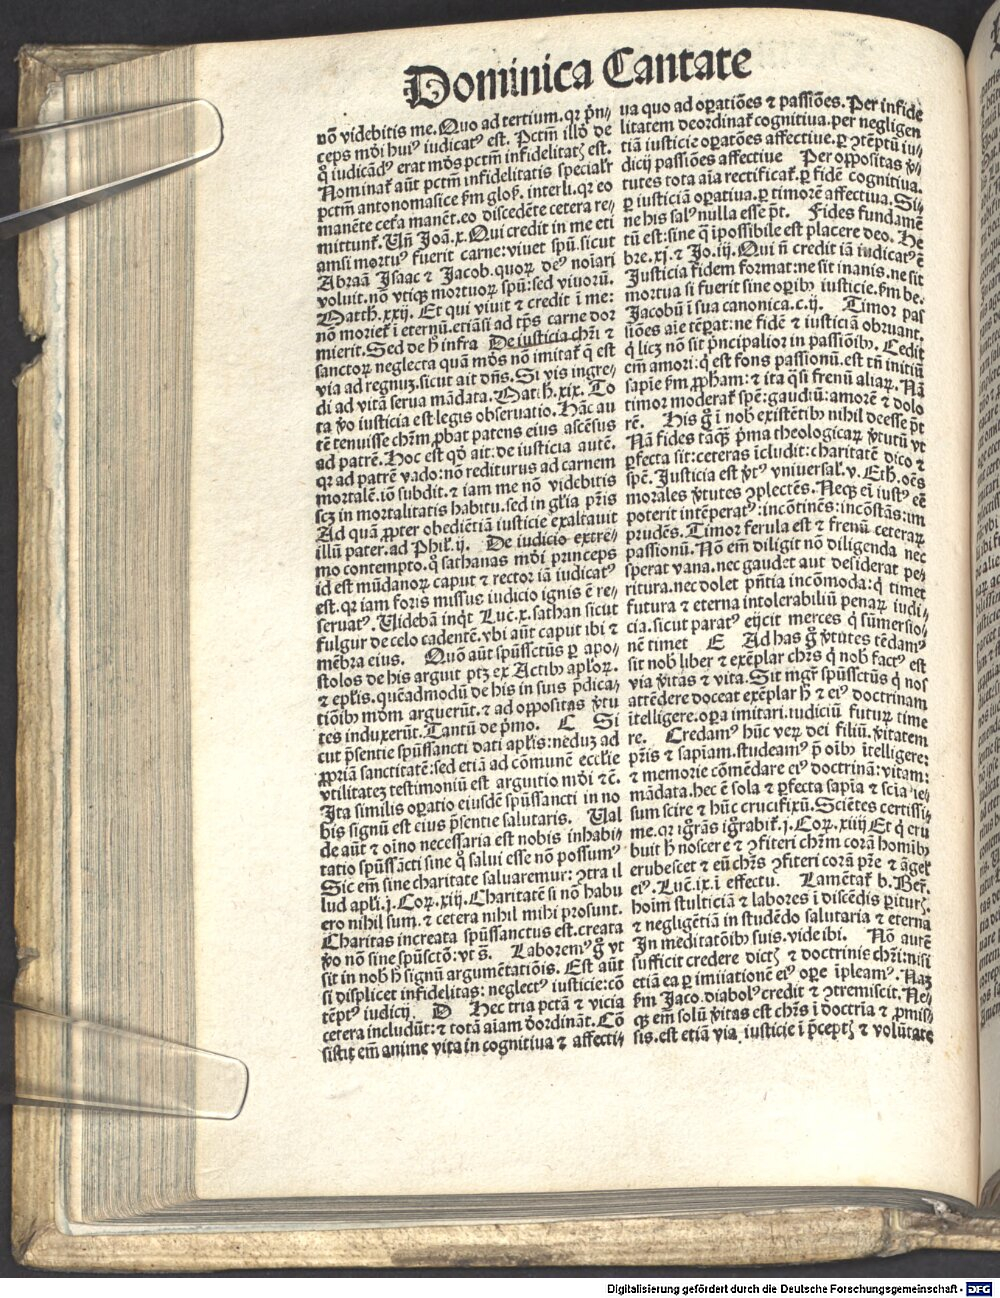 Dominica Cantate
nō videbitis me. Quo ad tertium. qꝛ pͥn⸗
ceps mōi huiꝰ iudicatꝰ est. Pctm̄ illō de
q̊ iudicādꝰ erat mōs pctm̄ infidelitatꝭ est.
Nominat᷑ aūt pctm̄ infidelitatis specialr̄
pctm̄ antonomasice ẜm gloꝭ. interli. qꝛ eo
manēte cet̉a manēt. eo discedēte cetera re⸗
mittunt᷑. Un̄ Joā. x. Qui credit in me eti
amsi mortuꝰ fuerit carne: viuet spū. sicut
Abraā Isaac ⁊ Jacob. quoꝝ deꝰ noīari
voluit. nō vtiqꝫ mortuoꝝ spū: sed viuorū.
Matth. xxij. Et qui viuit ⁊ credit ī me:
nō moriet᷑ ī eternū. etiāsi ad tp̄s carne dor
mierit. Sed de h̄ infra De iusticia chr̄i ⁊
sanctoꝝ neglecta quā mōs nō imitat᷑ q̄ est
via ad regnuꝫ. sicut ait dn̄s. Si vis ingre⸗
di ad vitā serua mādata. Mat. h. xix. To
ta v̊o iusticia est legis obseruatio. Hāc au
tē tenuisse chr̄m ꝓbat patens eius ascēsus
ad patrē. Hoc est qd̄ ait: de iusticia autē.
qꝛ ad patrē vado: nō rediturus ad carnem
mortalē. iō subdit. ⁊ iam me nō videbitis
scꝫ in mortalitatis habitu. sed in gl̄ia pr̄is
Ad quā ꝓpter obediētiā iusticie exaltauit
illū pater. ad Phil̓. ij. De iudicio extre⸗
mo contempto. q̊ sathanas mōi princeps
id est mūdanoꝝ caput ⁊ rector iā iudicatꝰ
est. qꝛ iam foris missus iudicio ignis ē re⸗
seruatꝰ. Uidebā inqͥt Luc̄. x. sathan sicut
fulgur de celo cadentē. vbi aūt caput ibi ⁊
mēbra eius. Quō aūt spūssctūs ꝑ apo⸗
stolos de his arguit ptꝫ ex Actibꝰ apl̓oꝝ.
⁊ epl̓is. quēadmodū de his in suis p̄dica⸗
tiōibꝰ mōm arguerūt. ⁊ ad oppositas v̊tu
tes induxerūt. Tantū de pͥmo. C Si
cut p̄sentie spūssancti dati apl̓is: neduꝫ ad
ꝓpriā sanctitatē: sed etiā ad cōmunē eccl̓ie
vtilitateꝫ testimoniū est argutio mōi ⁊c̄.
Ita similis oꝑatio eiusdē spūssancti in no
bis signū est eius p̄sentie salutaris. Ual
de aūt ⁊ oīno necessaria est nobis inhabi⸗
tatio spūssācti sine q̊ salui esse nō possumꝰ
Sic em̄ sine charitate saluaremur: ꝯtra il
lud apl̓i. j. Coꝝ. xiij. Charitatē si nō habu
ero nihil sum. ⁊ cetera nihil mihi prosunt.
Charitas increata spūssanctus est. creata
v̊o nō sine spūsctō: vt s̄. Laboremꝰ g̊ vt
sit in nob̓ h̄ signū argumētatiōis. Est aūt
si displicet infidelitas: neglectꝰ iusticie: cō
tēptꝰ iudicij. D Hec tria pctā ⁊ vicia
cetera includūt: ⁊ totā aīam d̊ordināt. Cō
sistit em̄ anime vita in cognitiua ⁊ affecti⸗
ua quo ad oꝑatiōes ⁊ passiōes. Per infide
litatem deordinat᷑ cognitiua. per negligen
tiā iusticie oꝑatōes affectiue. ꝑ ꝯtēptū iu⸗
dicij passiōes affectiue Per oppositas v̊⸗
tutes tota aīa rectificat᷑. ꝑ fidē cognitiua.
ꝑ iusticiā oꝑatiua. ꝑ timorē affectiua. Si⸗
ne his salꝰ nulla esse p̄t. Fides fundamē
tū est: sine q̊ īpossibile est placere deo. He
bre. xj. ⁊ Jo. iij. Qui nō credit iā iudicatꝰ ē
Justicia fidem format: ne sit inanis. ne sit
mortua si fuerit sine oꝑibꝰ iusticie. ẜm be.
Jacobū ī sua canonica. c. ij. Timor pas
siōes aīe tēperat: ne fidē ⁊ iusticiā obruant.
q̄ licꝫ nō sit pͥncipalior in passiōibꝰ. Cedit
em̄ amori: qͥ est fons passionū. est tn̄ initiū
sapīe ẜm ꝓpham: ⁊ ita q̄si frenū aliaꝝ. Nā
timor moderat᷑ spē: gaudiū: amorē ⁊ dolo
rē. His g̊ ī nob̓ existētibꝰ nihil deesse p̄t
Nā fides tāqꝫ pͥma theologicaꝝ v̊tutū vt
ꝑfecta sit: ceteras īcludit: charitatē dico ⁊
spē. Justicia est v̊tꝰ vniuersal̓. v. Eth. oēs
morales v̊tutes ꝯplectēs. Neqꝫ ei iustꝰ eē
poterit intēperatꝰ: incōtinēs: incōstās: im
prudēs. Timor ferula est ⁊ frenū ceteraꝝ
passionū. Nō em̄ diligit nō diligenda nec
sperat vana. nec gaudet aut desiderat pe⸗
ritura. nec dolet pn̄tia incōmoda: qͥ timet
futura ⁊ eterna intolerabiliū penaꝝ iudi⸗
cia. sicut paratꝰ eijcit merces q̄ sūmersio⸗
nē timet E Ad has g̊ v̊tutes tēdamꝰ
sit nob̓ liber ⁊ exēplar chr̄s qͥ nob̓ factꝰ est
via v̊itas ⁊ vita. Sit mgr̄ spūssctūs qͥ nos
attēdere doceat exēplar h̄ ⁊ eiꝰ doctrinam
ītelligere. oꝑa imitari. iudiciū futuꝝ time
re. Credamꝰ hūc veꝝ dei filiū. v̊itatem
pr̄is ⁊ sapīam. studeamꝰ p̄ oībꝰ ītelligere:
⁊ memorie cōmēdare eiꝰ doctrinā: vitam:
mādata. hec ē sola ⁊ ꝑfecta sapīa ⁊ scīa ie⸗
sum scire ⁊ hūc crucifixū. Sciētes certissi⸗
me. qꝛ igr̄ās igr̄abit᷑. j. Coꝝ. xiiij Et qͥ eru
buit h̄ noscere ⁊ ꝯfiteri chr̄m corā homībꝰ
erubescet ⁊ eū chr̄s ꝯfiteri corā pr̄e ⁊ āgel̓
eiꝰ. Luc̄. ix. ī effectu. Lamētat᷑ b. Ber̄.
hoīm stulticiā ⁊ labores ī discēdis ꝑiturꝭ.
⁊ negligētiā in studēdo salutaria ⁊ eterna
In meditatōibꝰ suis. vide ibi. Nō autē
sufficit credere dictꝭ ⁊ doctrinis chr̄i: nisi
etiā ea ꝑ imitationē eiꝰ oꝑe īpleamꝰ. Naꝫ
ẜm Jaco. diabolꝰ credit ⁊ ꝯtremiscit. Ne⸗
qꝫ em̄ solū v̊itas est chr̄s ī doctrīa ⁊ ꝓmis⸗
sis. est etiā via iusticie ī p̄ceptꝭ ⁊ volūtate
Digitalisierung gefördert durch die Deutsche Forschungsgemeinschaft - DFG